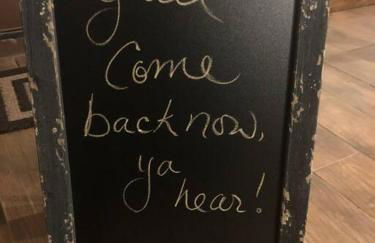 Come
back now,
ya
hear!